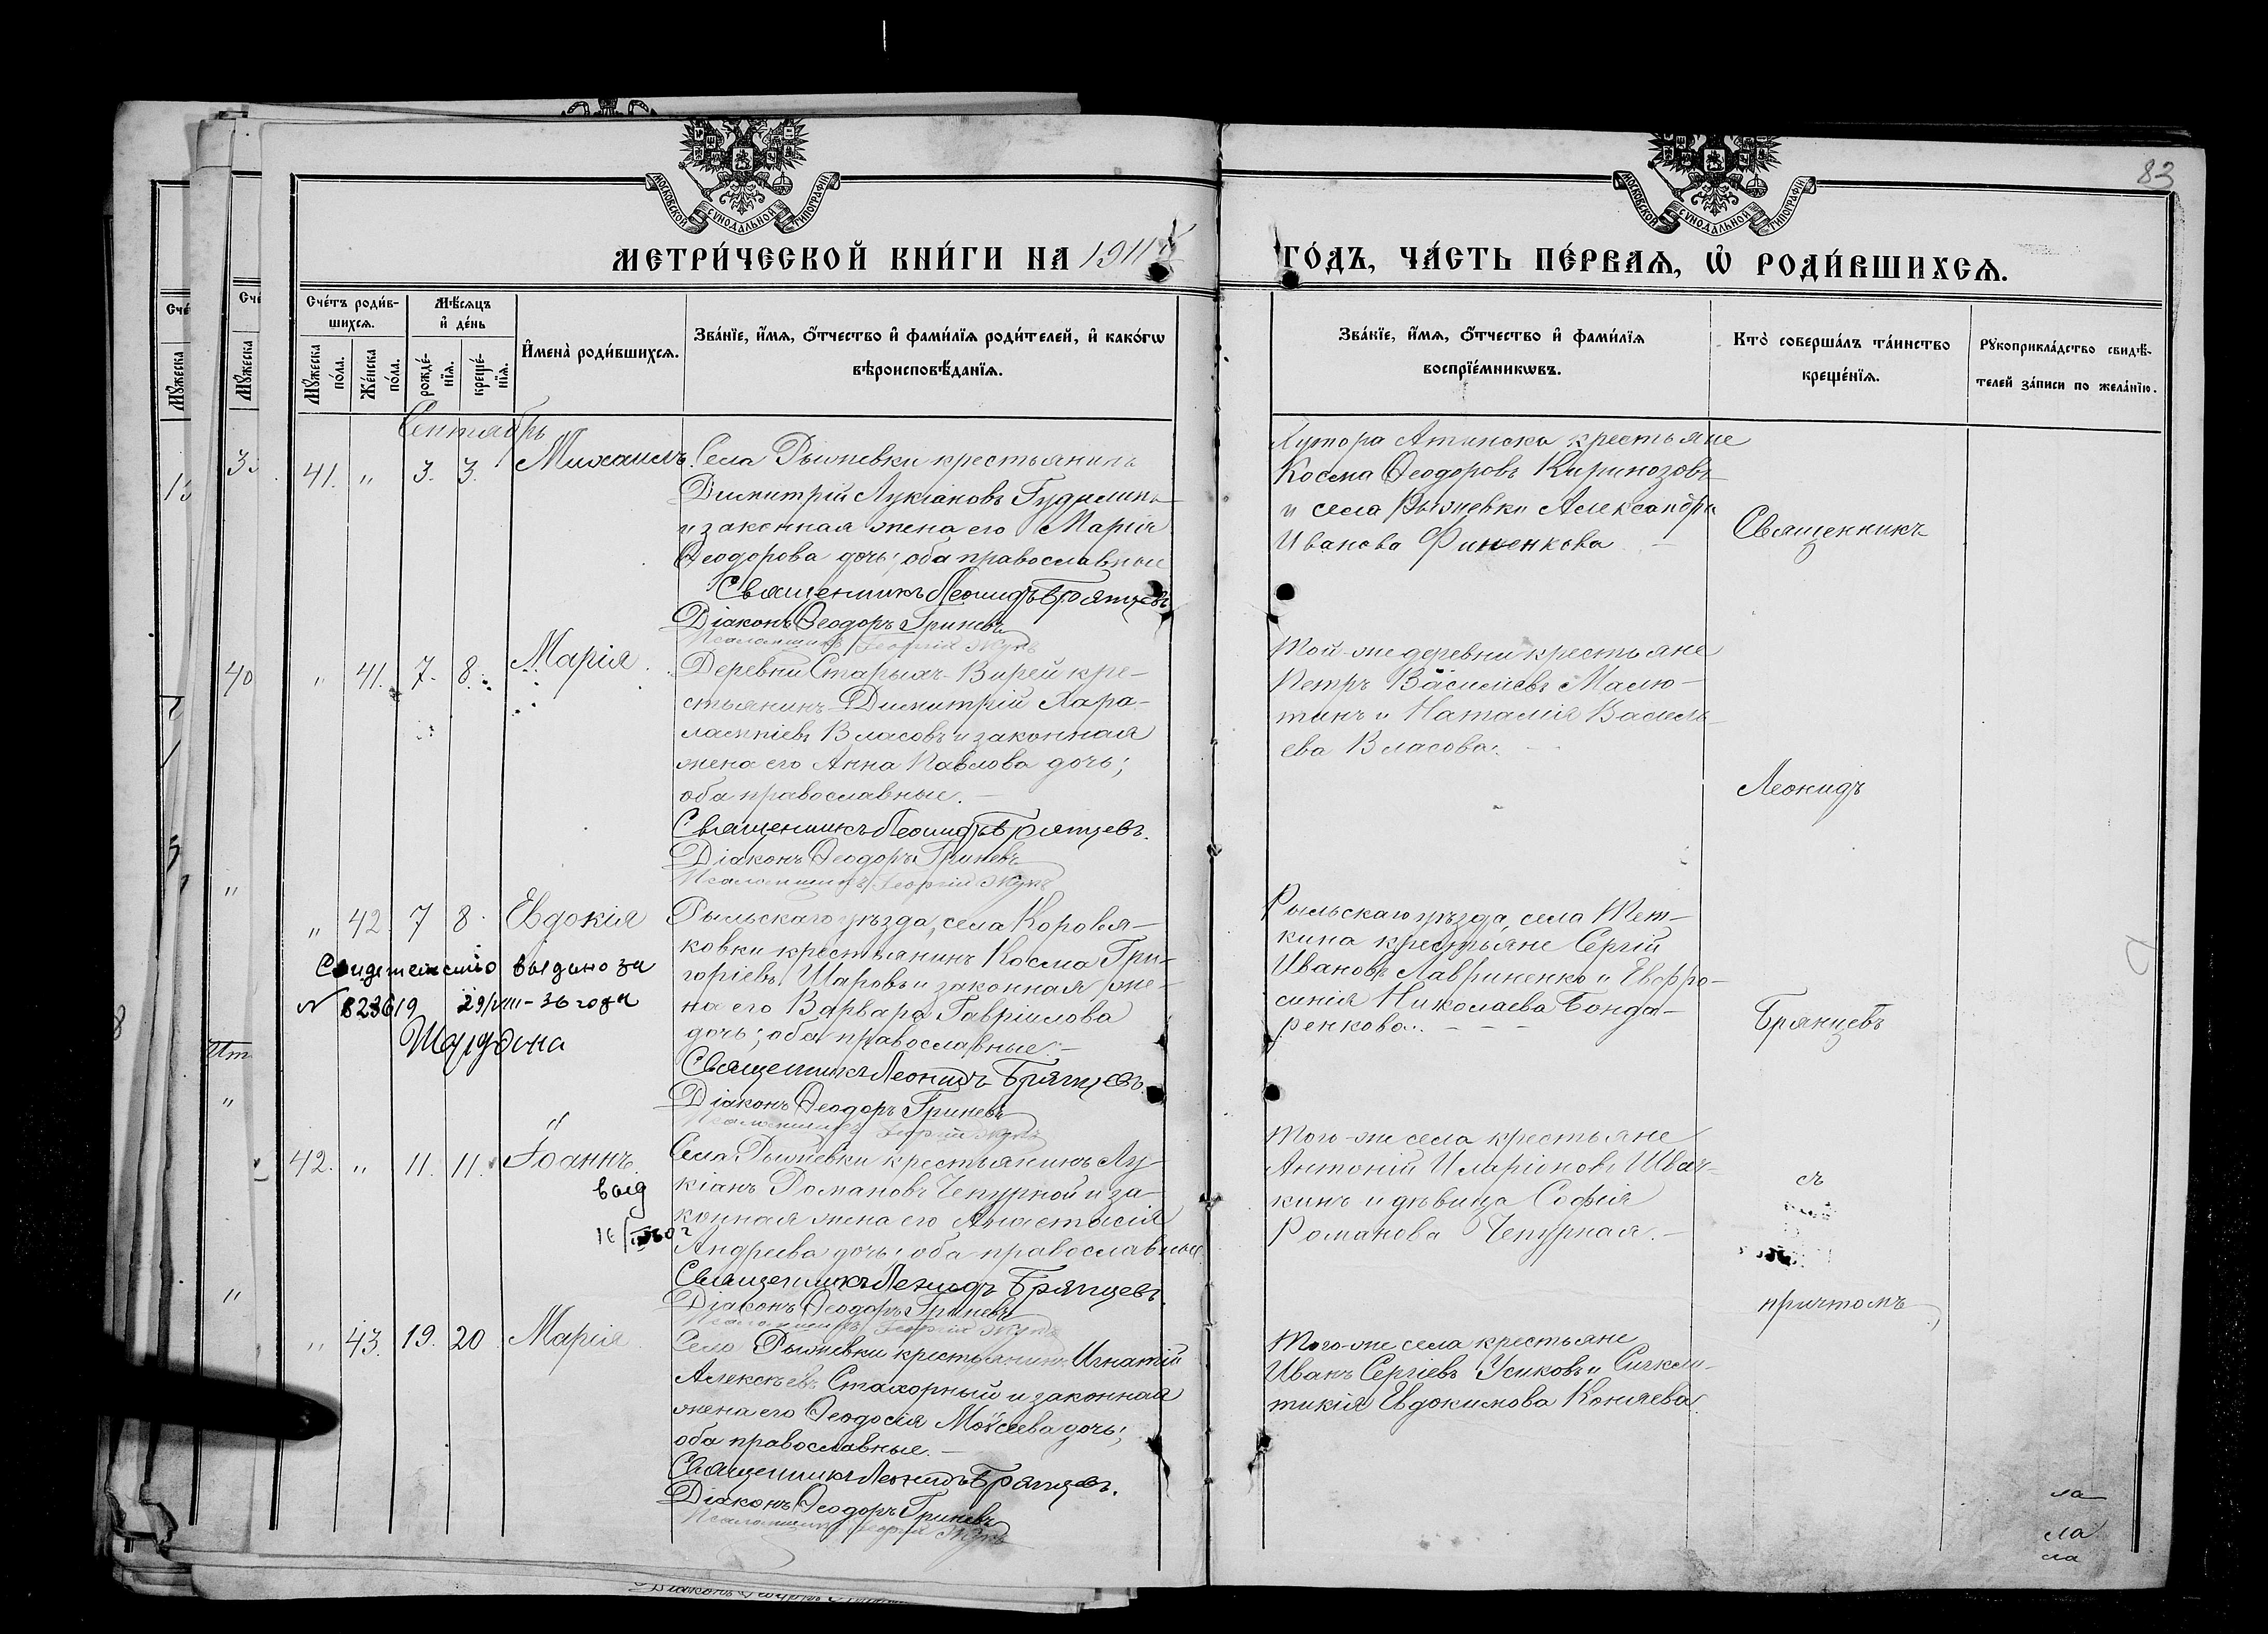 83
МОСКОВСКОЙ СѴНОДАЛЬНОЙ ТИПОГРАФІИ
МОСКОВСКОЙ СѴНОДАЛЬНОЙ ТИПОГРАФІИ
МЕТРИ́ЧЕСКОЙ КНИ́ГИ НА 1911
ГО́ДЪ, ЧА́СТЬ ПЕ́РВАѦ, Ѡ РОДИ́ВШИХСѦ.
Сче́тъ роди́в-
шихсѧ.
Мꙋ́жеска по́ла.
Же́нска по́ла.
Мѣ́сѧцъ
и де́нь
рожде́-
нїѧ.
креще́-
нїѧ.
Имена̀ роди́вшихсѧ.
Зва́нїе, и́мѧ, о́тчество и фами́лїѧ роди́телей, и како́гѡ
вѣроисповѣ́данїѧ.
Зва́нїе, и́мѧ, о́тчество и фами́лїѧ
воспрїе́мникѡвъ.
Кто̀ соверша́лъ та́инство
креще́нїѧ.
Рꙋкоприкла́дство свидѣ́-
телей за́писи по жела́нїю.
Сентябрь
41. " 3. 3. Михаилъ
Села Рыжевки крестьянинъ
Димитрій Лукіановъ
и законная жена его Марія
Ѳеодорова дочь; оба православные
Священникъ Леонидъ Брянцевъ
Діаконъ Ѳеодоръ Гриневъ
Псаломщикъ Георгій Жукъ
Хутора Атинска крестьяне
Косма Ѳеодоровъ
и села Рыжевки Александра
Иванова Фименкова
Священникъ
" 41. 7. 8. Марія
Деревни Старыхъ-Вирей кре-
стьянинъ Димитрій Хара-
лампіевъ Власовъ и законная
жена его Анна Павлова дочь;
оба православные.
Священникъ Леонидъ Брянцевъ.
Діаконъ Ѳеодоръ Гриневъ
Псаломщикъ Георгій Жукъ
Той-же деревни крестьяне
Петръ Васильевъ Малю-
тинъ и Наталія Василь-
ева Власова.
Леонидъ
" 42 7 8. Евдокія
Свидетельство выдано за
N 823619 29/VIII-36 года
Рыльскаго уѣзда, села Коровя-
ковки крестьянинъ Косма Гри-
горіевъ Шаровъ и законная же-
на его Варвара Гавріилова
дочь; оба православные.
Священникъ Леонидъ Брянцевъ.
Діаконъ Ѳеодоръ Гриневъ
Псаломщикъ Георгій Жукъ
Рыльскаго уѣзда, села Тет-
кина крестьяне Сергій
Ивановъ Лавриненко и Евфро-
синія Николаева Бонда-
ренкова.
Брянцевъ
42. " 11. 11. Іоаннъ.
выд
Села Рыжевки крестьянинъ Лу-
кіанъ Романовъ Чепурной и за-
конная жена его Анастасія
Андреева дочь; оба православные
Священникъ Леонидъ Брянцевъ.
Діаконъ Ѳеодоръ Гриневъ
Псаломщикъ Георгій Жукъ
Того-же села крестьяне
Антоній Иларіоновъ
кинъ и дѣвица Софія
Романова Чепурная.
съ
причтомъ
" 43. 19. 20 Марія
Села Рыжевки крестьянинъ Игнатій
Алексѣевъ Стахорный и законная
жена его Ѳеодосія Моѵсеева дочь;
оба православные.
Священникъ Леонидъ Брянцевъ.
Діаконъ Ѳеодоръ Гриневъ
Псаломщикъ Георгій Жукъ
Того-же села крестьяне
Иванъ Сергіевъ Усиковъ и Синкли-
тикія Евдокимова Коняева.